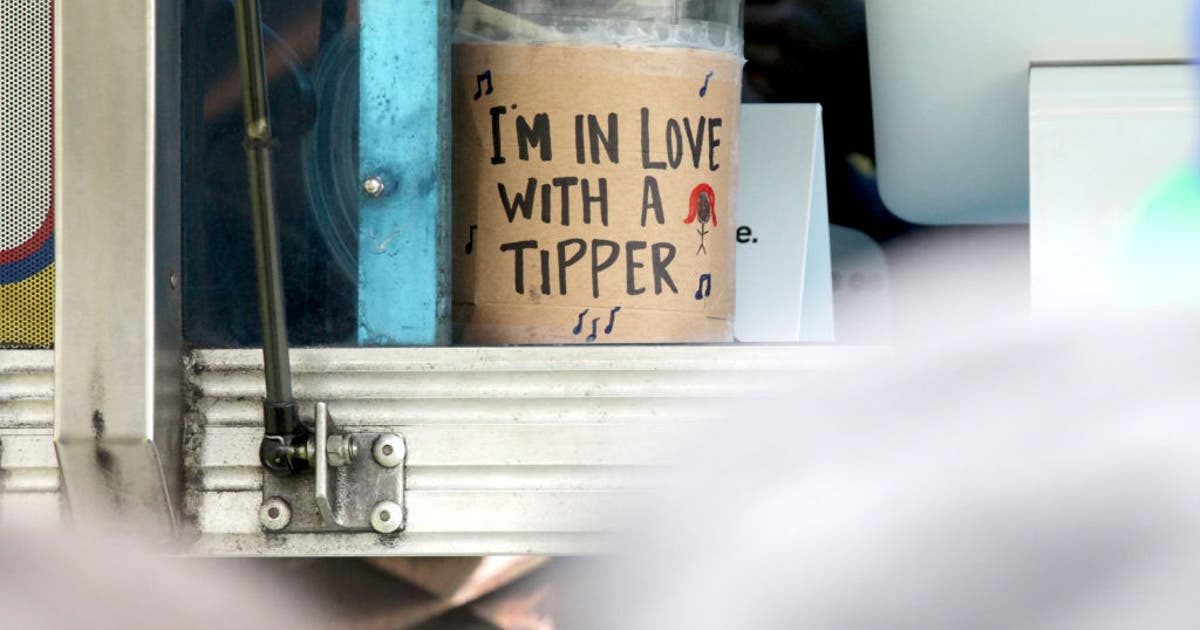 I'M IN LOVE
WITH A
TIPPER
e.